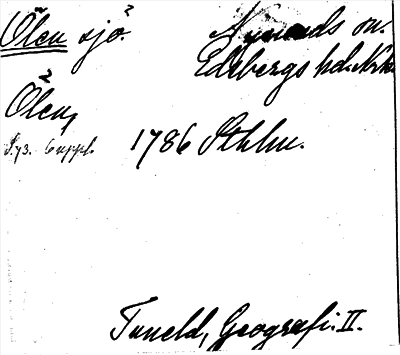 Ölen sjö. Nysunds sn.
Edsbergs hd. Nrk.
Ölen,
1786 Sthlm.
Tuneld, Geografi. II.